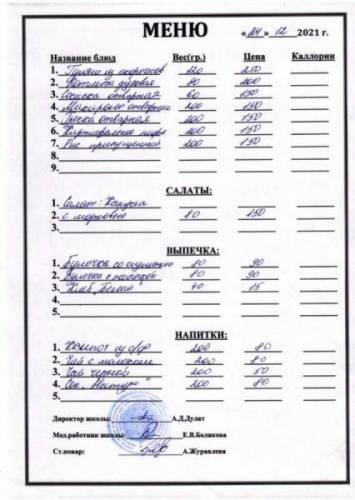 МЕНЮ «24» 12 2021 г.
Название блюд Вес(гр.) Цена Каллории
1. 120 250
2. Котлета куриная 80 200
3. Сосиска отварная 60 150
4. Макароны отварные 200 150
5. Гречка отварная 200 150
6. Картофельное пюре 200 150
7. Рис припущенный 200 150
8.
9.
САЛАТЫ:
1. Салат: Капуста
2. с морковью 80 150
3.
ВЫПЕЧКА:
1. Булочка со сгущёнкой 80 90
2. Булочка с 80 90
3. Хлеб "Белый" 40 15
4.
5.
НАПИТКИ:
1. Компот из с/фр 200 80
2. Чай с молоком 200 80
3. Чай черный 200 50
4. Сок 200 80
5.
Директор школы: А.Д.Дулат
Мед.работник школы: Е.В.Беликова
Ст.повар: А.Журавлева